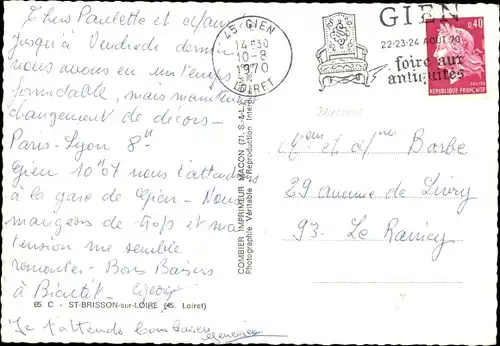 Chers Paulette et
Jusqu'à Vendredi dernier
nous avons eu un temps
formidable, mais maintenant
changement de décors -
Paris - Lyon 8H
Gien 10H07 nous t'attendons
à la gare de Gien - Nous
mangeons de trop et ma
tension me semble
remonter - Bons Baisers
à Bientôt -
65 C - ST-BRISSON-sur-LOIRE (45. Loiret)
Je t'attends bons baisers
COMBIER IMPRIMEUR MACON (71, S.-&-L.)
Photographie Véritable - Reproduction Interdite
45 - GIEN
14H30
10-8
1970
LOIRET
GIEN
22-23-24 AOUT 70
foire aux
antiquités
0,40
REPUBLIQUE FRANÇAISE
et Barbe
29 avenue de Livry
93. Le Raincy